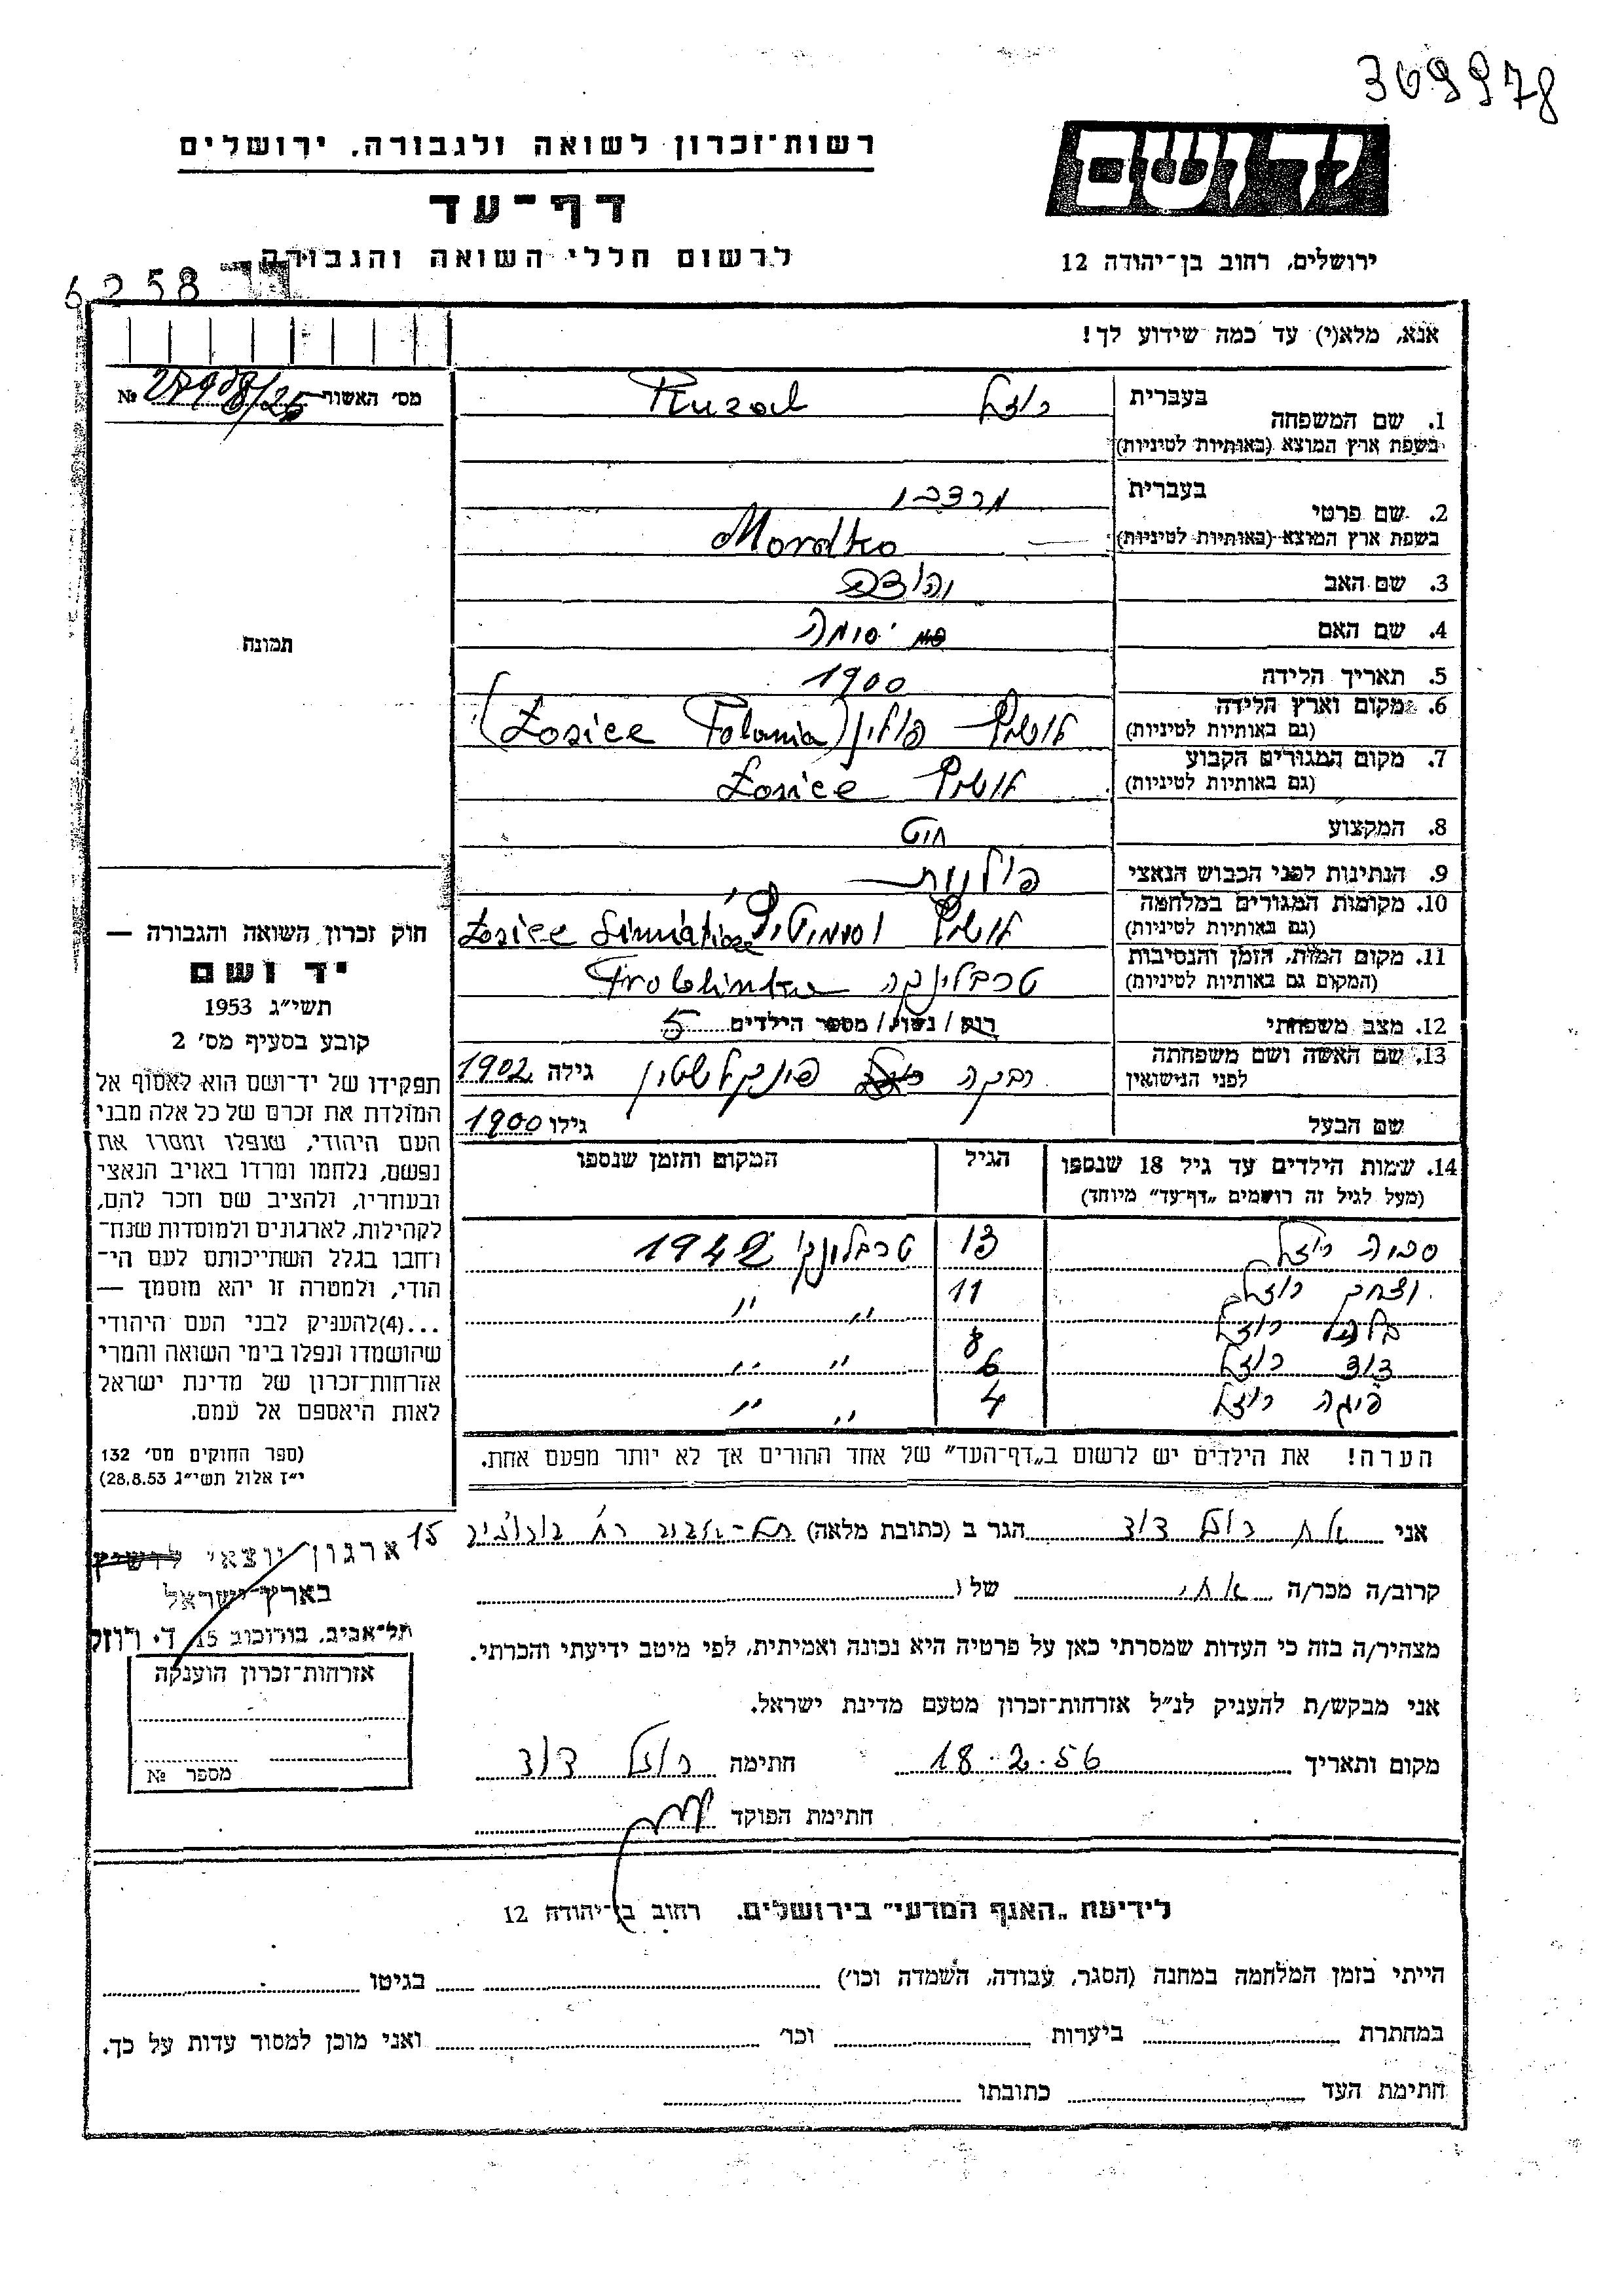 369978
רשות־זכרון לשואה ולגבורה, ירושלים
יד ושם
דף־עד
לרשום חללי השואה והגבורה
ירושלים, רחוב בן־יהודה 12
6258
אנא, מלא(י) עד כמה שידוע לך!
מס׳ האשור №
1. שם המשפחה בעברית רוזל Ruzal
בשפת ארץ המוצא (באותיות לטיניות)
2. שם פרטי בעברית מרדכי
בשפת ארץ המוצא (באותיות לטיניות) Mordko
3. שם האב
4. שם האם
5. תאריך הלידה 1900
6. מקום וארץ הלידה (גם באותיות לטיניות) פולין (Łosice Polania)
7. מקום המגורים הקבוע (גם באותיות לטיניות) Łosice
8. המקצוע
9. הנתינות לפני הכבוש הנאצי פולנית
10. מקומות המגורים במלחמה (גם באותיות לטיניות) Łosice
11. מקום המות, הזמן והנסיבות (המקום גם באותיות לטיניות) טרבלינקה
12. מצב משפחתי רוק / נשוי / מספר הילדים 5
13. שם האשה ושם משפחתה לפני הנישואין רבקה פינקלשטין גילה 1902
שם הבעל גילו 1900
14. שמות הילדים עד גיל 18 שנספו הגיל המקום והזמן שנספו
(מעל לגיל זה רושמים „דף־עד״ מיוחד)
רוזל 13 1942
יצחק רוזל 11 " "
רוזל 8
דוד רוזל 6 " "
פיגה רוזל 4 " "
הערה! את הילדים יש לרשום ב„דף־העד״ של אחד ההורים אך לא יותר מפעם אחת.
תמונה
חוק זכרון השואה והגבורה —
יד ושם
תשי״ג 1953
קובע בסעיף מס׳ 2
תפקידו של יד־ושם הוא לאסוף אל
המולדת את זכרם של כל אלה מבני
העם היהודי, שנפלו ומסרו את
נפשם, נלחמו ומרדו באויב הנאצי
ובעוזריו, ולהציב שם וזכר להם,
לקהילות, לארגונים ולמוסדות שנח־
רחבו בגלל השתייכותם לעם הי־
הודי, ולמטרה זו יהא מוסמך —
...(4)להעניק לבני העם היהודי
שהושמדו ונפלו בימי השואה והמרי
אזרחות־זכרון של מדינת ישראל
לאות היאספם אל עמם.
(ספר החוקים מס׳ 132
י״ז אלול תשי״ג 28.8.53)
אני רוזל דוד הגר ב (כתובת מלאה) תל־אביב רח׳ 15
קרוב/ה מכר/ה של
מצהיר/ה בזה כי העדות שמסרתי כאן על פרטיה היא נכונה ואמיתית, לפי מיטב ידיעתי והכרתי.
אני מבקש/ת להעניק לנ״ל אזרחות־זכרון מטעם מדינת ישראל.
מקום ותאריך 18.2.56 חתימה רוזל דוד
חתימת הפוקד
ארגון יוצאי
בארץ־ישראל
תל־אביב, בורוכוב 15, ד. רוזל
אזרחות־זכרון הוענקה
מספר №
לידיעת „האגף המדעי״ בירושלים. רחוב בן־יהודה 12
הייתי בזמן המלחמה במחנה (הסגר, עבודה, השמדה וכו׳) בגיטו
במחתרת ביערות וכו׳ ואני מוכן למסור עדות על כך.
חתימת העד כתובתו